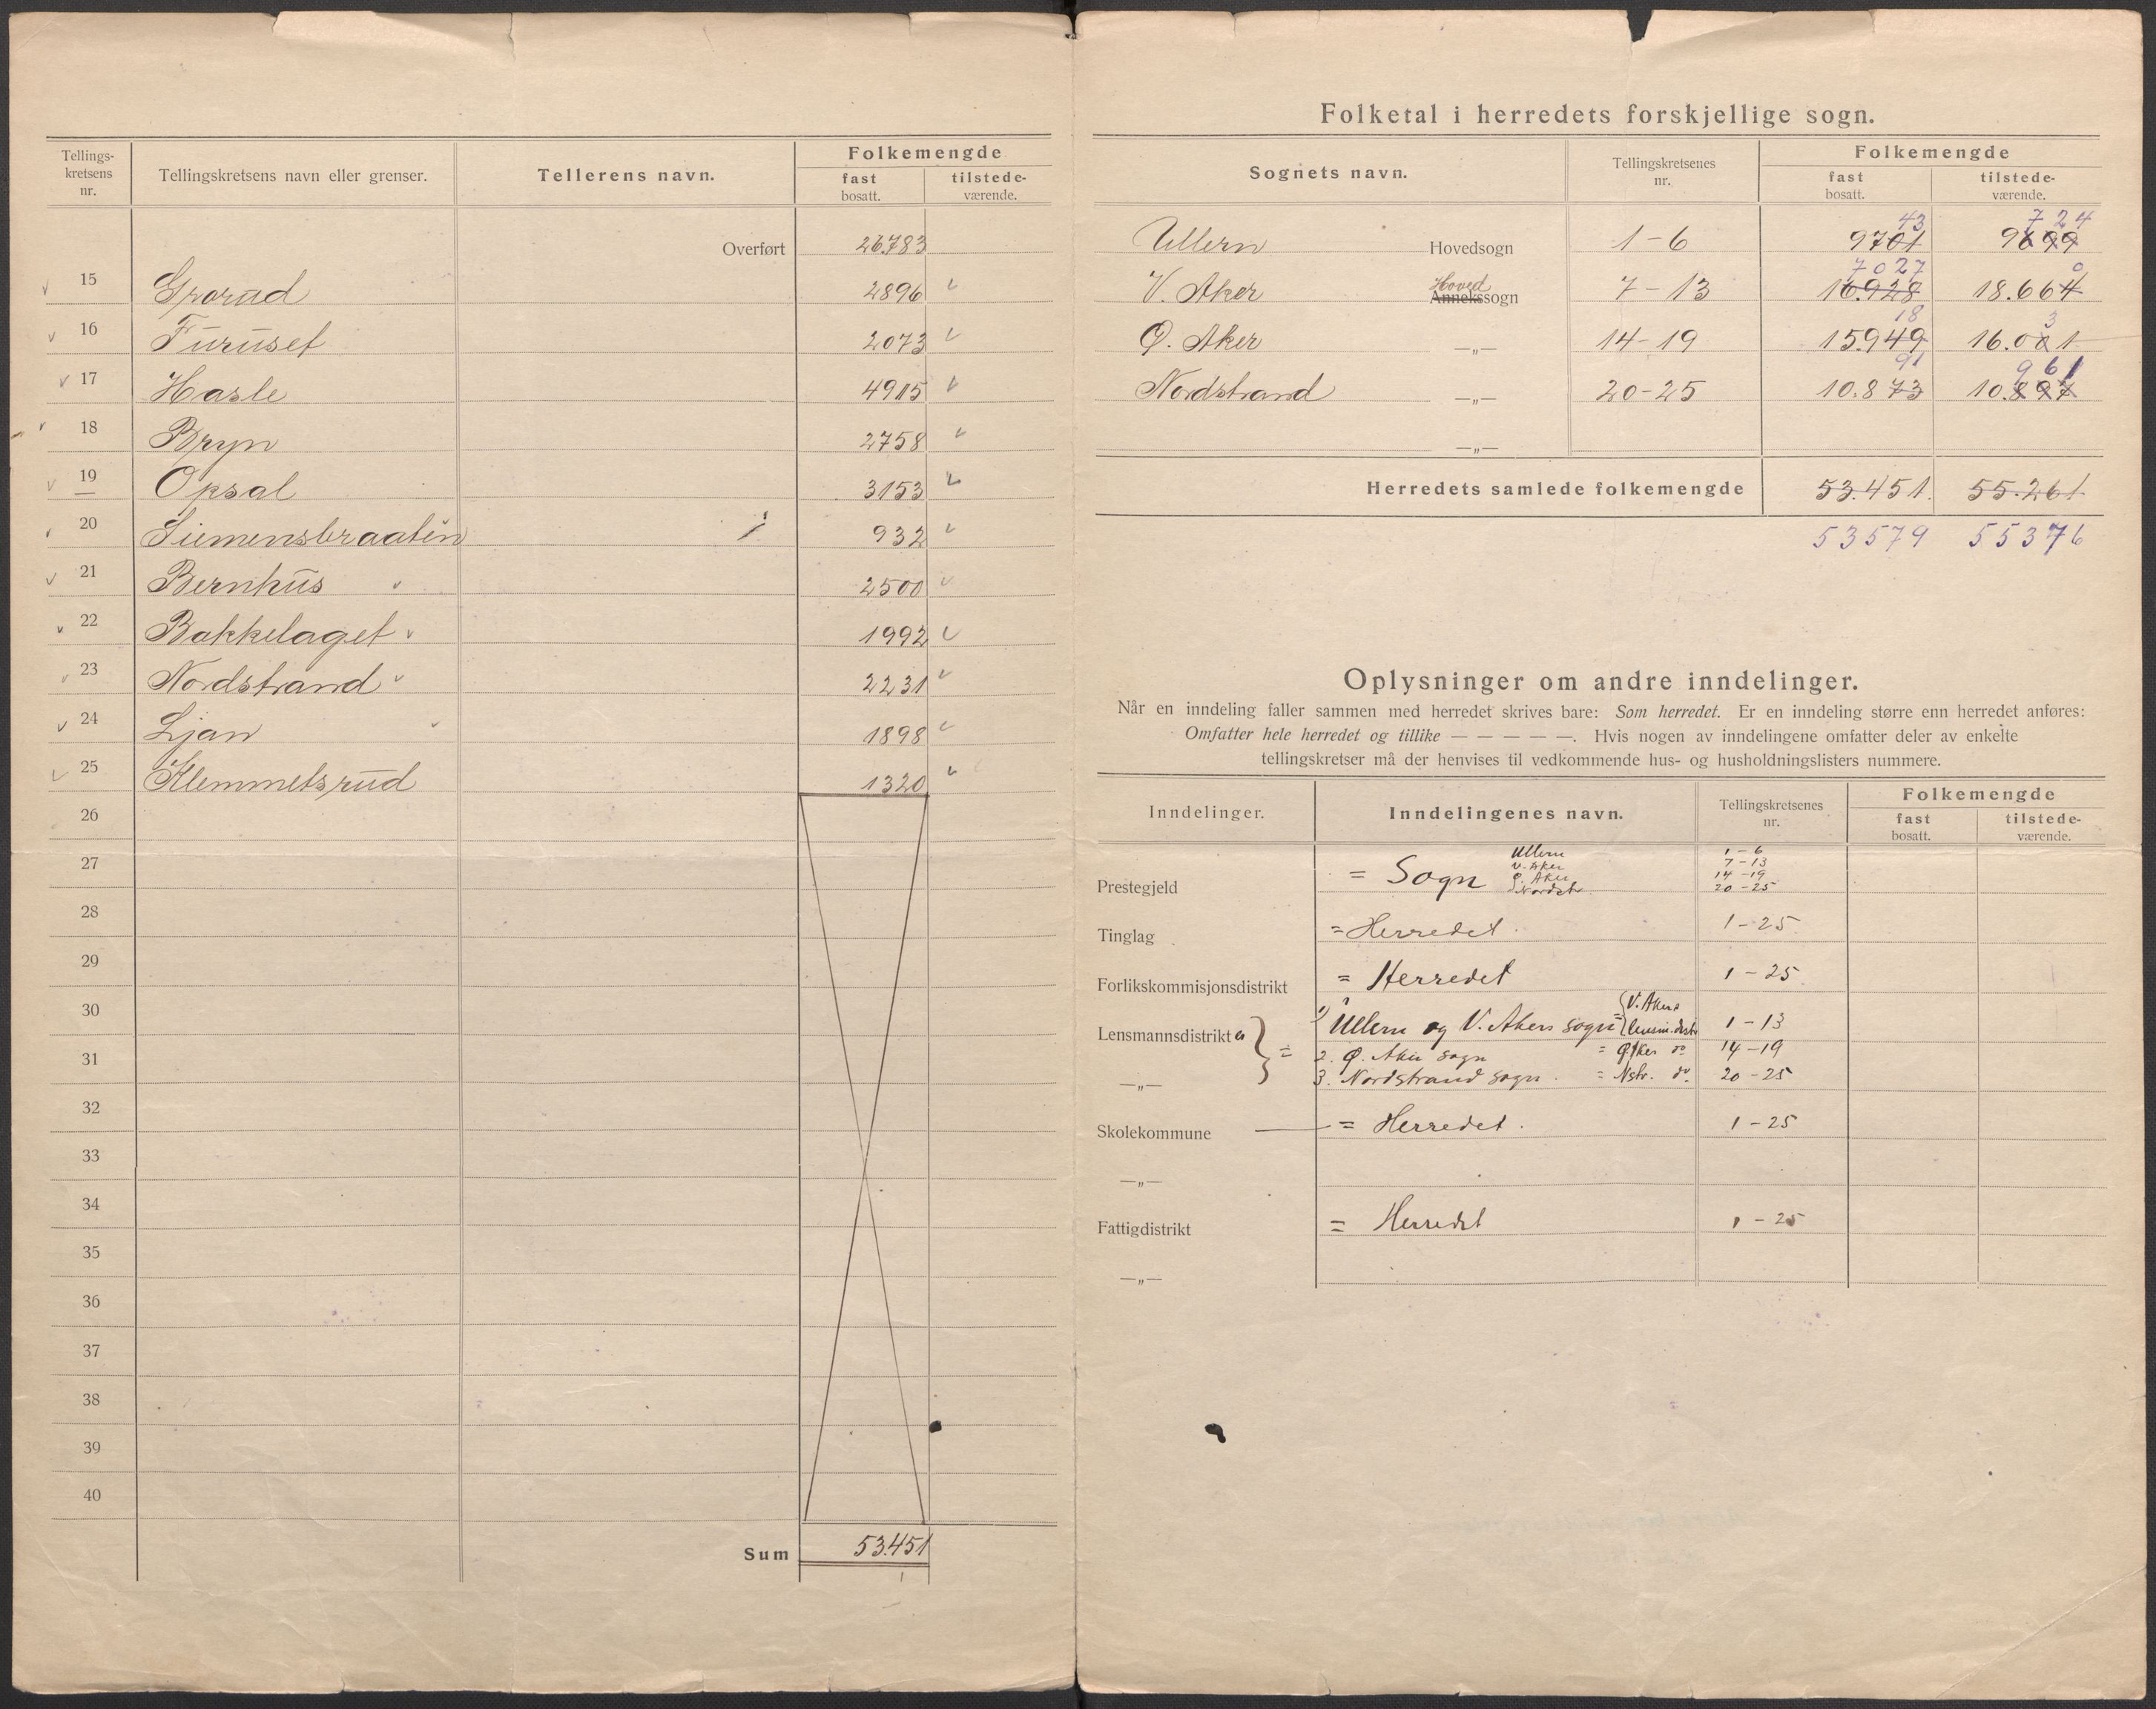 Tellings-kretsens nr. Tellingskretsens navn eller grenser. Tellerens navn. Folkemengde fast bosatt. tilstede-værende.
Overført 26.783
15 Grorud 2896
16 Furuset 2073
17 Hasle 4915
18 Bryn 2758
19 Opsal 3153
20 Simensbraaten 932
21 Bernhus 2500
22 Bækkelaget 1992
23 Nordstrand 2231
24 Ljan 1898
25 Klemmetsrud 1320
26
27
28
29
30
31
32
33
34
35
36
37
38
39
40
Sum 53.451
Folketal i herredets forskjellige sogn.
Sognets navn. Tellingskretsenes nr. Folkemengde fast bosatt. tilstede-værende.
43 7 24
Ullern Hovedsogn 1-6 9701 9699
7027 0
V. Aker Hoved Annekssogn 7-13 16.928 18.664
18 3
Ø. Aker —„— 14-19 15.949 16.001
91 961
Nordstrand —„— 20-25 10.873 10.897
—„—
Herredets samlede folkemengde 53.451. 55.261.
53579 55376
Oplysninger om andre inndelinger.
Når en inndeling faller sammen med herredet skrives bare: Som herredet. Er en inndeling større enn herredet anføres:
Omfatter hele herredet og tillike — — — — —. Hvis nogen av inndelingene omfatter deler av enkelte
tellingskretser må der henvises til vedkommende hus- og husholdningslisters nummere.
Inndelinger. Inndelingenes navn. Tellingskretsenes nr. Folkemengde fast bosatt. tilstede-værende.
Ullern 1-6
V. Aker 7-13
Prestegjeld = Sogn Ø. Aker 14-19
Nordstr 20-25
Tinglag = Herredet. 1-25
Forlikskommisjonsdistrikt = Herredet 1-25
Lensmannsdistrikt er = 1) Ullern og V. Akers sogn = V. Akers lensm.distr 1-13
2. Ø. Aker sogn = Ø. Aker do 14-19
—„— 3. Nordstrand sogn. = Nstr. do. 20-25
Skolekommune = Herredet. 1-25
—„—
Fattigdistrikt = Herredet 1-25
—„—